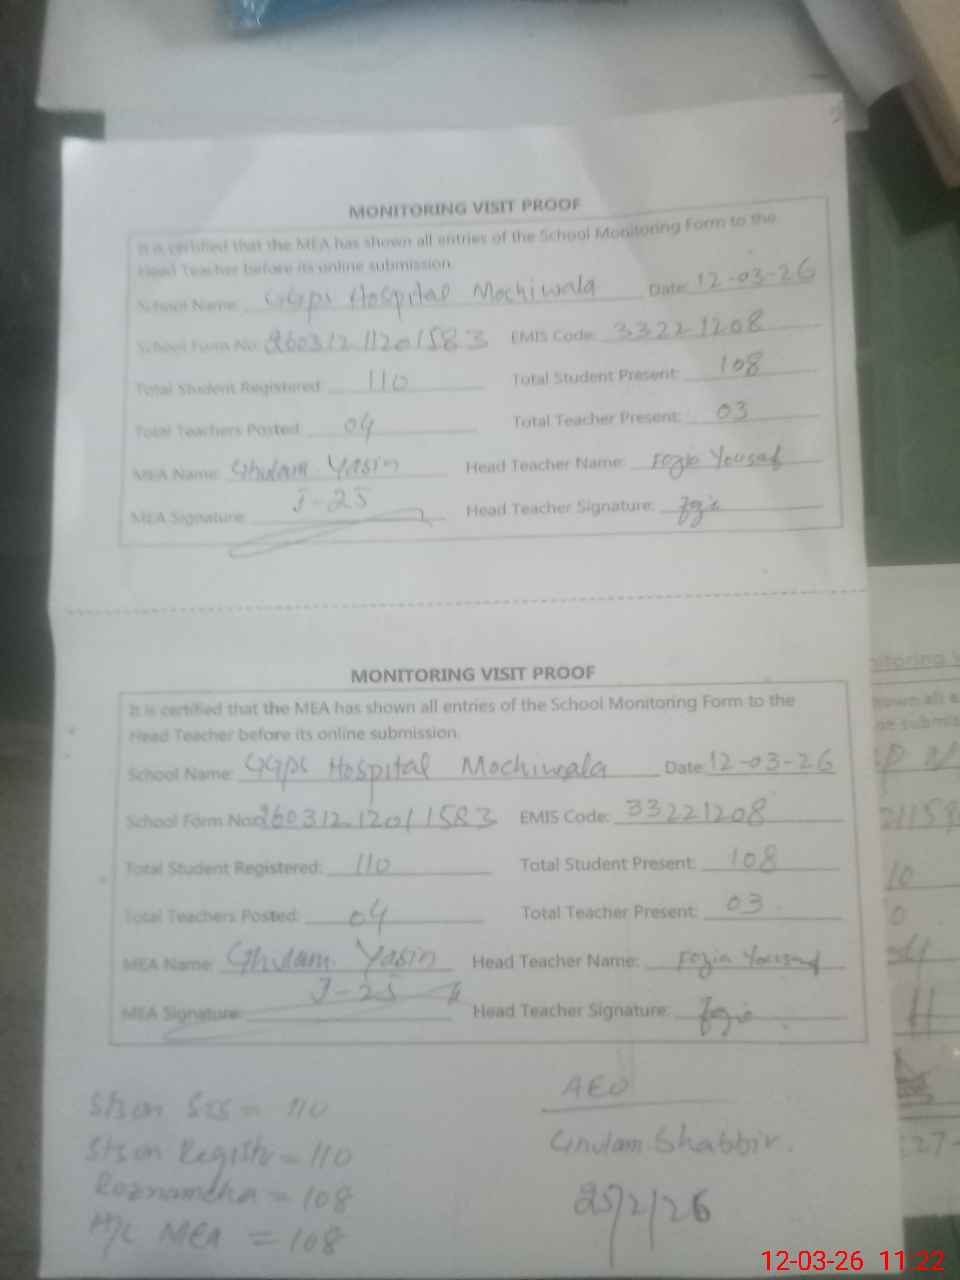 MONITORING VISIT PROOF
It is certified that the MEA has shown all entries of the School Monitoring Form to the
Head Teacher before its online submission.
School Name: GGPS Hospital Mochiwala Date: 12-03-26
School Form No: 26031211201583 EMIS Code: 33221208
Total Student Registered: 110 Total Student Present: 108
Total Teachers Posted: 04 Total Teacher Present: 03
MEA Name: Ghulam Yasin Head Teacher Name: Fozia Yousaf
J-25
MEA Signature: Head Teacher Signature: Fozia
MONITORING VISIT PROOF
It is certified that the MEA has shown all entries of the School Monitoring Form to the
Head Teacher before its online submission.
School Name: GGPS Hospital Mochiwala Date: 12-03-26
School Form No: EMIS Code: 33221208
Total Student Registered: 110 Total Student Present: 108
Total Teachers Posted: 04 Total Teacher Present: 03
MEA Name: Ghulam Yasin Head Teacher Name: Fozia Yousaf
J-25
MEA Signature: Head Teacher Signature: Fozia
Sts on SIS = 110
Sts on Registr = 110
Roznamcha = 108
H/C MEA = 108
AEO
Ghulam Shabbir.
25/2/26
12-03-26 11:22